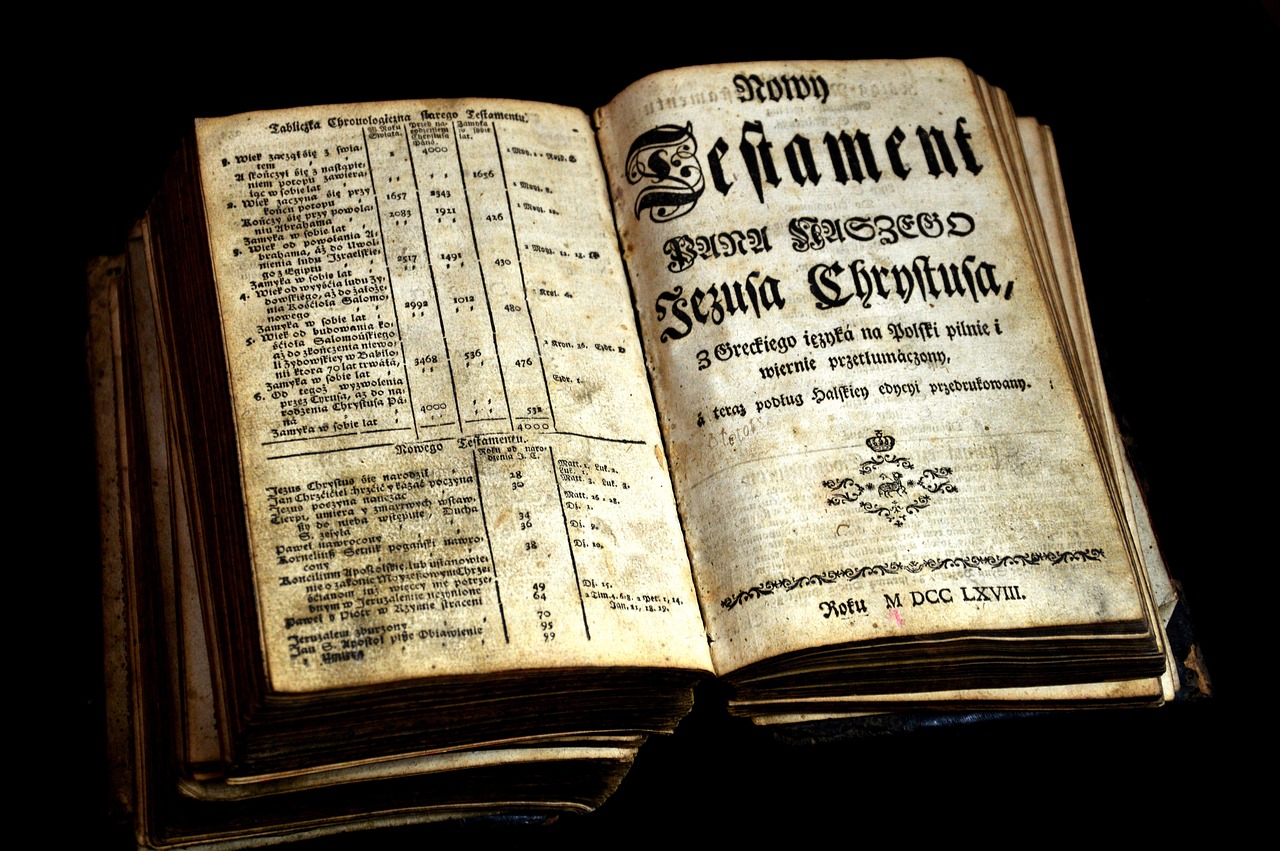 Tabliczka Chronologiczna starego Testamentu.
W Roku Swiata.
Przed na-
rodzeniem
Chrystusa
Pana.
Zamyka
w sobie
lat.
1. Wiek zaczął się z swia-
tem 1 4000
A skończył się z nastąpie-
niem potopu zawiera-
iąc w sobie lat 1656
2. Wiek zaczyna się przy
końcu potopu 1657 2343
Kończy się przy powoła-
niu Abrahama 2083 1921
Zamyka w sobie lat 426
3. Wiek od powołania A-
brahama, aż do Uwol-
nienia ludu Izraelskie-
go z Egiptu 2517 1491
Zamyka w sobie lat 430
4. Wiek od wyyścia ludu Zy-
dowskiego, aż do założe-
nia Kościoła Salomo-
nowego 2992 1012
Zamyka w sobie lat 480
5. Wiek od budowania ko-
ścioła Salomońskiego
aż do zkończenia niewo-
li Zydowskiey w Babilo-
nii ktora 70 lat trwała, 3468 536
Zamyka w sobie lat 476
6. Od tegoż wyzwolenia
przez Cyrusa, aż do na-
rodzenia Chrystusa Pa-
na 4000
Zamyka w sobie lat 532
4000
Nowego Testamentu.
Roku od naro-
dzenia J. C.
Jezus Chrystus się narodził
Jan Chrzciciel chrzcić y kazać poczyna 28
Jezus poczyna nauczać 30
Cierpi, umiera y zmartwych wstaw-
szy do nieba wstępuie, Ducha
S. zsyła 34
Paweł nawrocony 36
Korneliusz Setnik pogański nawro-
cony 38
Koncilium Apostolskie, lub ustanowie-
nie o zakonie Moyżeszowym Chrze-
ścianom iuż więcey nie potrze-
bnym w Jeruzalemie uczynione 49
Paweł y Piotr w Rzymie straceni 64
Jeruzalem zburzony 70
Jan S. Apostoł pisze Obiawienie 95
y umiera 99
Nowy
Testament
PANA NASZEGO
Jezusa Chrystusa,
Z Greckiego ięzyká na Polski pilnie i
wiernie przetłumáczony,
á teraz podług Halskiey edycyi przedrukowany.
Roku M DCC LXVIII.